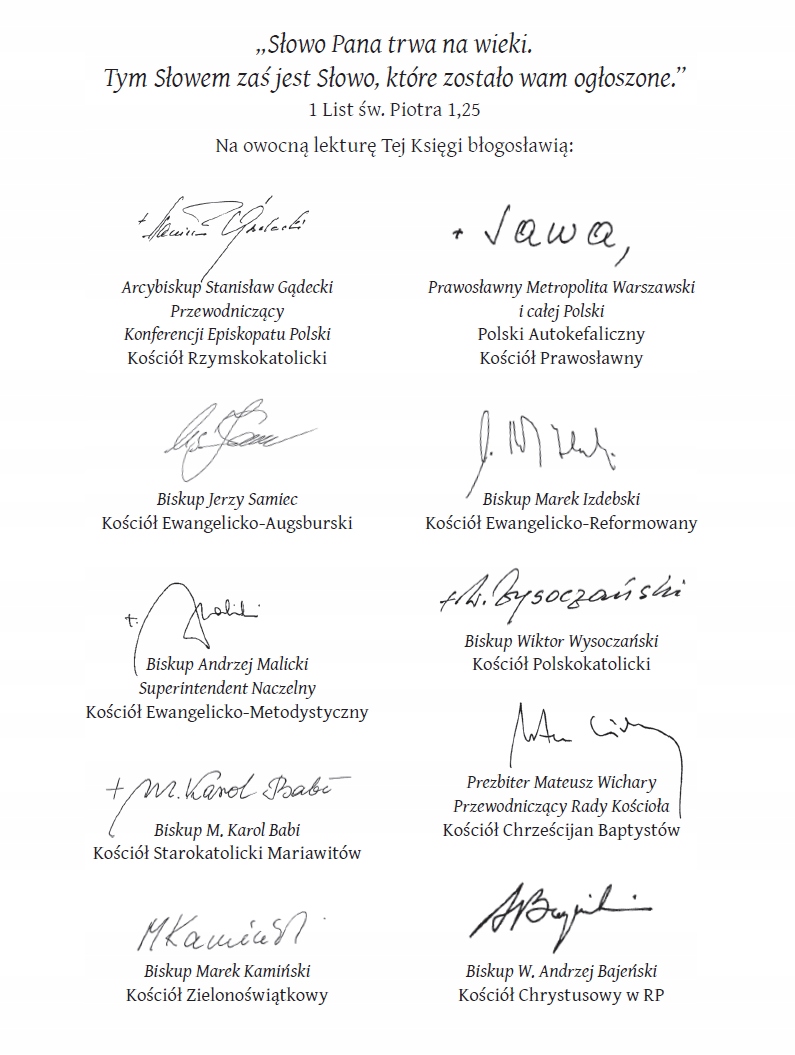 „Słowo Pana trwa na wieki.
Tym Słowem zaś jest Słowo, które zostało wam ogłoszone.”
1 List św. Piotra 1,25
Na owocną lekturę Tej Księgi błogosławią:
Arcybiskup Stanisław Gądecki
Przewodniczący
Konferencji Episkopatu Polski
Kościół Rzymskokatolicki
+ Sawa,
Prawosławny Metropolita Warszawski
i całej Polski
Polski Autokefaliczny
Kościół Prawosławny
Biskup Jerzy Samiec
Kościół Ewangelicko-Augsburski
Biskup Marek Izdebski
Kościół Ewangelicko-Reformowany
Biskup Andrzej Malicki
Superintendent Naczelny
Kościół Ewangelicko-Metodystyczny
+ W. Wysoczański
Biskup Wiktor Wysoczański
Kościół Polskokatolicki
+ M. Karol Babi
Biskup M. Karol Babi
Kościół Starokatolicki Mariawitów
Prezbiter Mateusz Wichary
Przewodniczący Rady Kościoła
Kościół Chrześcijan Baptystów
MKamiński
Biskup Marek Kamiński
Kościół Zielonoświątkowy
Biskup W. Andrzej Bajeński
Kościół Chrystusowy w RP